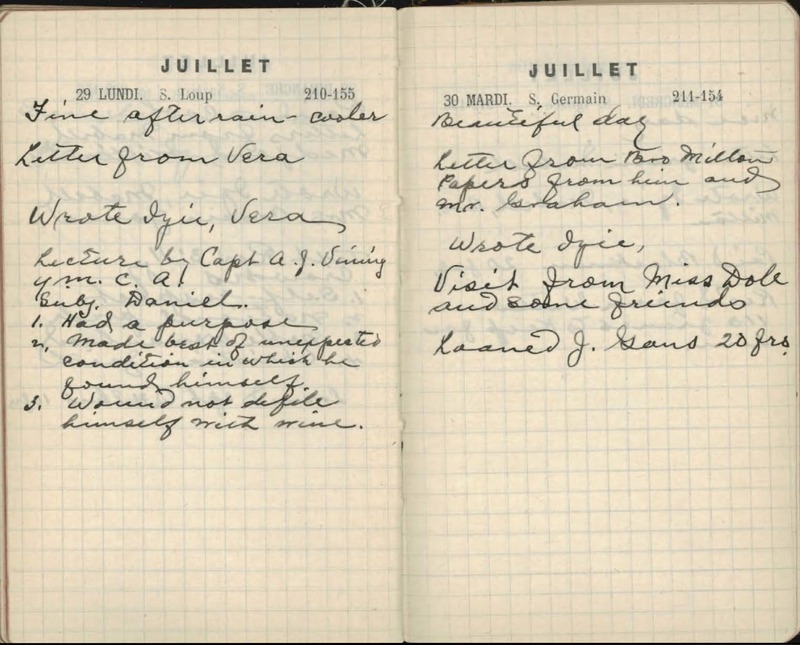 JUILLET
29 LUNDI. S. Loup 210-155
Fine after rain - cooler
Letter from Vera
Wrote Izie, Vera
Lecture by Capt A. J. Vining
Y.M.C.A.
Subj. Daniel.
1. Had a purpose
2. Made best of unexpected
condition in which he
found himself.
3. Would not defile
himself with wine.
JUILLET
30 MARDI. S. Germain 211-154
Beautiful day
Letter from Bro Milton
Papers from him and
Mr. Graham.
Wrote Izie,
Visit from Miss Dole
and some friends
Loaned J. Gans 20 frs.